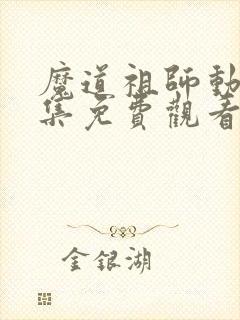 魔道祖師動
集免費觀看
金銀湖